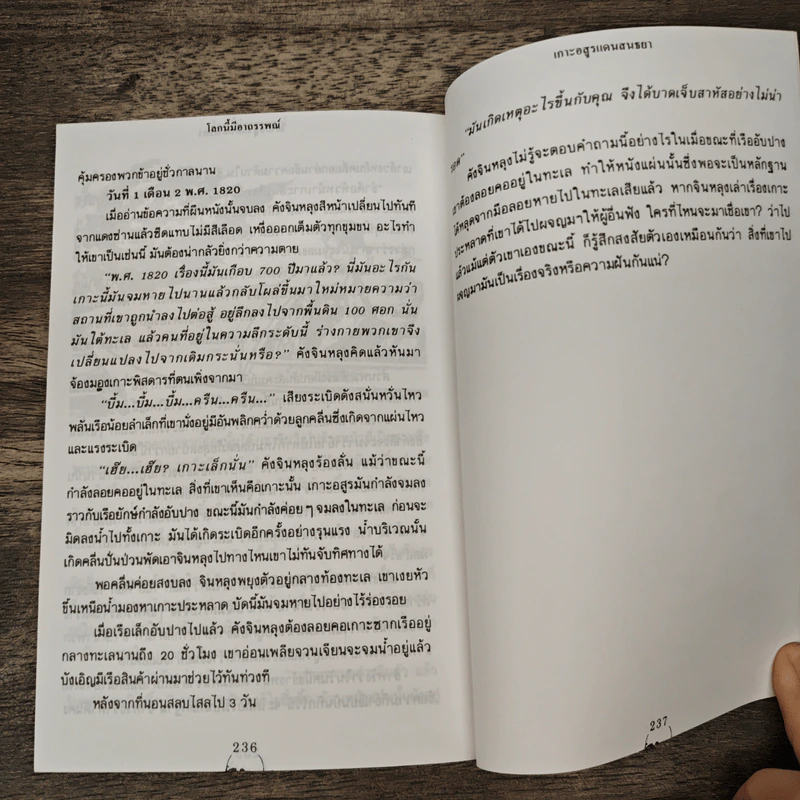 โลกนี้มีอาถรรพณ์
คุ้มครองพวกข้าอยู่ชั่วกาลนาน
วันที่ 1 เดือน 2 พ.ศ. 1820
เมื่ออ่านข้อความที่ผืนหนังนั้นจบลง คังจินหลุงสีหน้าเปลี่ยนไปทันที
จากแดงซ่านแล้วซีดแทบไม่มีสีเลือด เหงื่อออกเต็มตัวทุกขุมขน อะไรทำ
ให้เขาเป็นเช่นนี้ มันต้องน่ากลัวยิ่งกว่าความตาย
"พ.ศ. 1820 เรื่องนี้มันเกือบ 700 ปีมาแล้ว? นี่มันอะไรกัน
เกาะนี้มันจมหายไปนานแล้วกลับโผล่ขึ้นมาใหม่หมายความว่า
สถานที่เขาถูกนำลงไปต่อสู้ อยู่ลึกลงไปจากพื้นดิน 100 ศอก นั่น
มันใต้ทะเล แล้วคนที่อยู่ในความลึกระดับนี้ ร่างกายพวกเขาจึง
เปลี่ยนแปลงไปจากเดิมกระนั่นหรือ?" คังจินหลุงคิดแล้วหันมา
จ้องมองเกาะพิสดารที่ตนเพิ่งจากมา
"บึ้ม...บึ้ม...บึ้ม...ครืน...ครืน..." เสียงระเบิดดังสนั่นหวั่นไหว
พลันเรือน้อยลำเล็กที่เขานั่งอยู่มีอันพลิกคว่ำด้วยลูกคลื่นซึ่งเกิดจากแผ่นไหว
และแรงระเบิด
"เฮ๊ย...เฮ๊ย? เกาะเล็กนั่น" คังจินหลุงร้องลั่น แม้ว่าขณะนี้
กำลังลอยคออยู่ในทะเล สิ่งที่เขาเห็นคือเกาะนั้น เกาะอสูรมันกำลังจมลง
ราวกับเรือยักษ์กำลังอับปาง ขณะนี้มันกำลังค่อยๆจมลงในทะเล ก่อนจะ
มิดลงน้ำไปทั้งเกาะ มันได้เกิดระเบิดอีกครั้งอย่างรุนแรง น้ำบริเวณนั้น
เกิดคลื่นปั่นป่วนพัดเอาจินหลุงไปทางไหนเขาไม่ทันจับทิศทางได้
พอคลื่นค่อยสงบลง จินหลุงพยุงตัวอยู่กลางท้องทะเล เขาเงยหัว
ขึ้นเหนือน้ำมองหาเกาะประหลาด บัดนี้มันจมหายไปอย่างไร้ร่องรอย
เมื่อเรือเล็กอับปางไปแล้ว คังจินหลุงต้องลอยคอเกาะซากเรืออยู่
กลางทะเลนานถึง 20 ชั่วโมง เขาอ่อนเพลียจวนเจียนจะจมน้ำอยู่แล้ว
บังเอิญมีเรือสินค้าผ่านมาช่วยไว้ทันท่วงที
หลังจากที่นอนสลบไสลไป 3 วัน
236
เกาะอสูรแดนสนธยา
"มันเกิดเหตุอะไรขึ้นกับคุณ จึงได้บาดเจ็บสาหัสอย่างไม่น่า
รอด"
คังจินหลุงไม่รู้จะตอบคำถามนี้อย่างไรในเมื่อขณะที่เรืออับปาง
เขาต้องลอยคออยู่ในทะเล ทำให้หนังแผ่นนั้นซึ่งพอจะเป็นหลักฐาน
ได้หลุดจากมือลอยหายไปในทะเลเสียแล้ว หากจินหลุงเล่าเรื่องเกาะ
ประหลาดที่เขาได้ไปผจญมาให้ผู้อื่นฟัง ใครที่ไหนจะมาเชื่อเขา? ว่าไป
แล้วแม้แต่ตัวเขาเองขณะนี้ ก็รู้สึกสงสัยตัวเองเหมือนกันว่า สิ่งที่เขาไป
ผจญมามันเป็นเรื่องจริงหรือความฝันกันแน่?
237